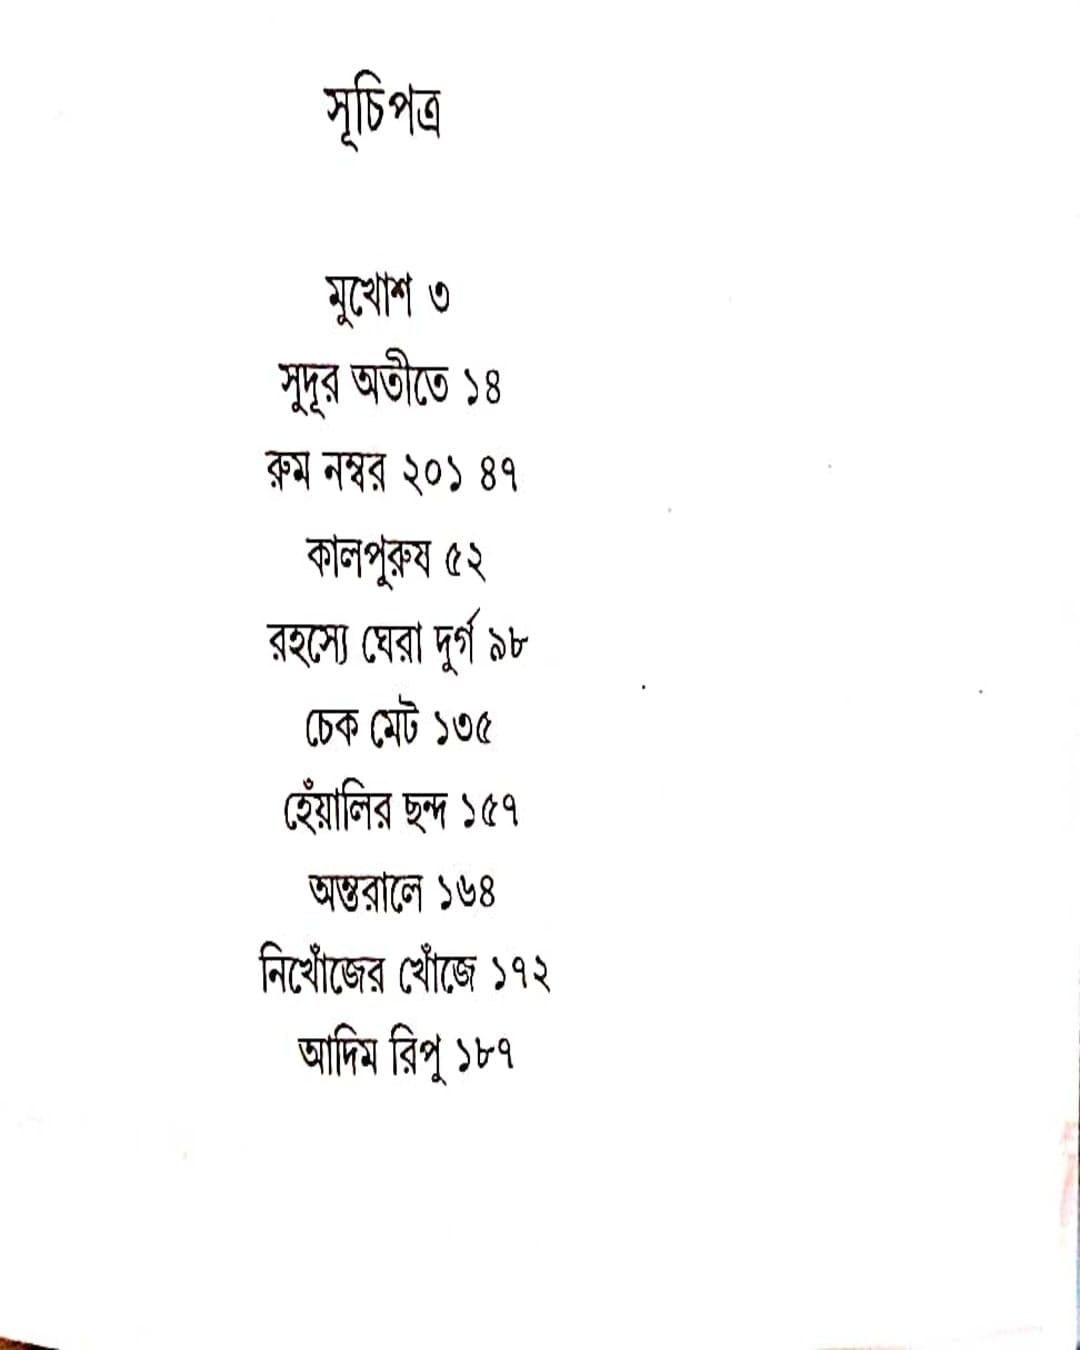 সূচিপত্র
মুখোশ ৩
সুদূর অতীতে ১৪
রুম নম্বর ২০১ ৪৭
কালপুরুষ ৫২
রহস্যে ঘেরা দুর্গ ৯৮
চেক মেট ১৩৫
হেঁয়ালির ছন্দ ১৫৭
অন্তরালে ১৬৪
নিখোঁজের খোঁজে ১৭২
আদিম রিপু ১৮৭